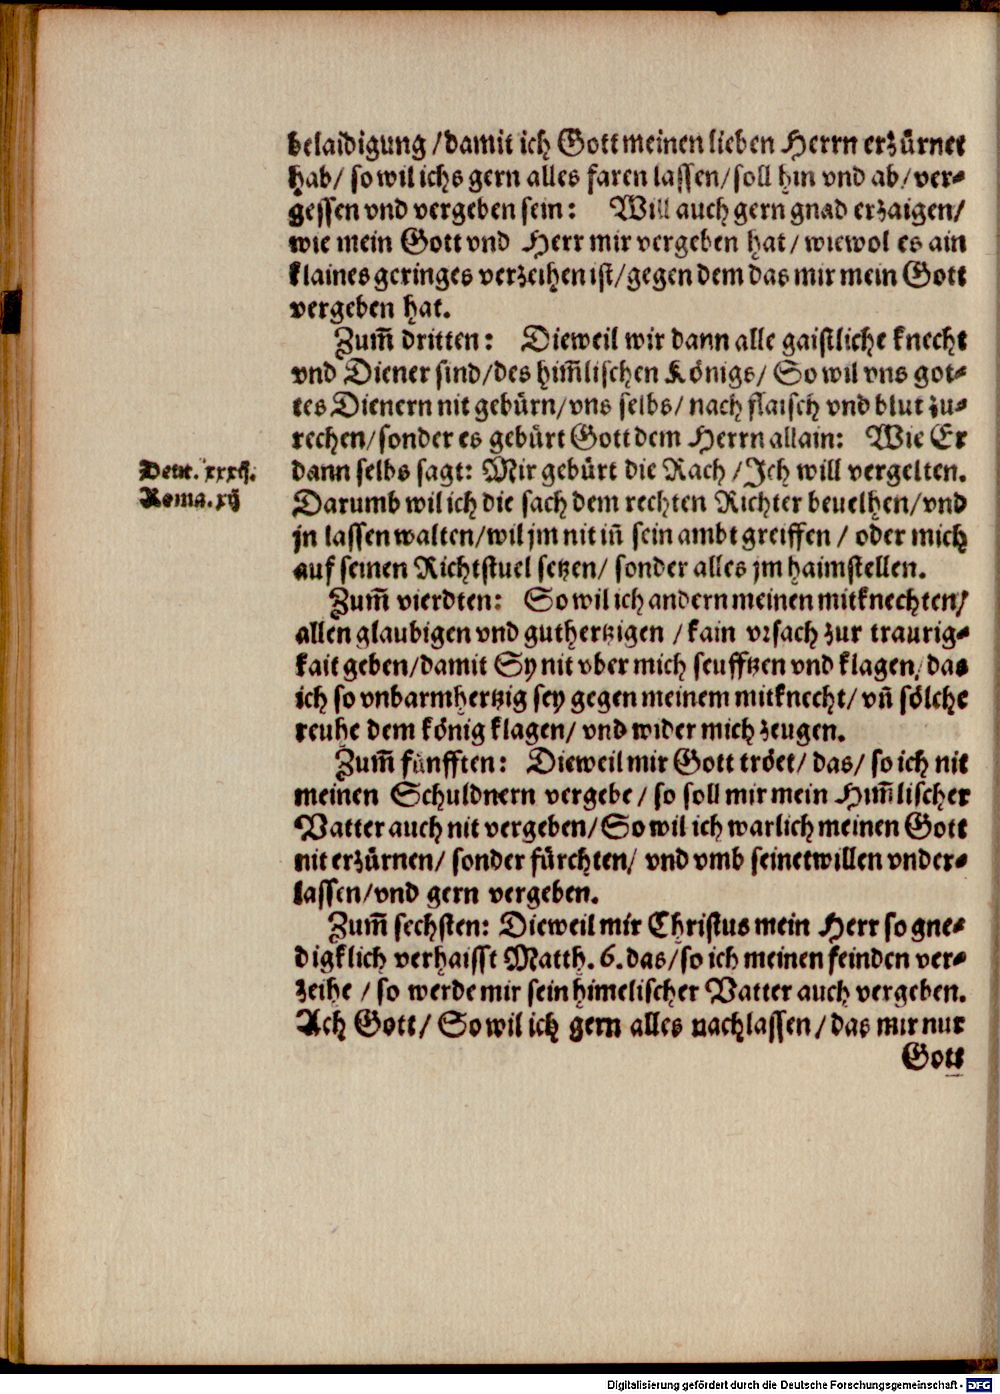 belaidigung /damit ich Gott meinen lieben Herrn erzürnet
hab/ so wil ichs gern alles faren lassen/ soll hin vnd ab/ ver-
gessen vnd vergeben sein: Will auch gern gnad erzaigen/
wie mein Gott vnd Herr mir vergeben hat/ wiewol es ain
klaines geringes verzeihen ist/ gegen dem das mir mein Gott
vergeben hat.
Zum̃ dritten: Dieweil wir dann alle gaistliche knecht
vnd Diener sind/ des him̃lischen Königs/ So wil vns got-
tes Dienern nit gebürn/ vns selbs/ nach flaisch vnd blut zu-
rechen/ sonder es gebürt Gott dem Herrn allain: Wie Er
Deut. xxxij. dann selbs sagt: Mir gebürt die Rach /Ich will vergelten.
Roma. xij Darumb wil ich die sach dem rechten Richter beuelhen/ vnd
jn lassen walten/ wil jm nit iñ sein ambt greiffen / oder mich
auf seinen Richtstuel setzen/ sonder alles jm haimstellen.
Zum̃ vierdten: So wil ich andern meinen mitknechten/
allen glaubigen vnd guthertzigen / kain vrsach zur traurig-
kait geben/ damit Sy nit vber mich seufftzen vnd klagen/ das
ich so vnbarmhertzig sey gegen meinem mitknecht/ vñ sölche
reuhe dem könig klagen/ vnd wider mich zeugen.
Zum̃ fünfften: Dieweil mir Gott tröet/ das/ so ich nit
meinen Schuldnern vergebe/ so soll mir mein Him̃lischer
Vatter auch nit vergeben/ So wil ich warlich meinen Gott
nit erzürnen/ sonder fürchten/ vnd vmb seinetwillen vnder-
lassen/ vnd gern vergeben.
Zum̃ sechsten: Dieweil mir Christus mein Herr so gne-
digklich verhaisst Matth. 6. das/ so ich meinen feinden ver-
zeihe / so werde mir sein himelischer Vatter auch vergeben.
Ach Gott/ So wil ich gern alles nachlassen/ das mir nur
Gott
Digitalisierung gefördert durch die Deutsche Forschungsgemeinschaft - DFG